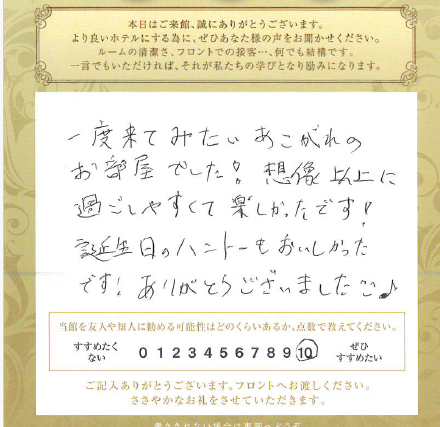 本日はご来館、誠にありがとうございます。
より良いホテルにする為に、ぜひあなた様の声をお聞かせください。
ルームの清潔さ、フロントでの接客…、何でも結構です。
一言でもいただければ、それが私たちの学びとなり励みになります。
一度来てみたいあこがれの
お部屋でした! 想像以上に
過ごしやすくて楽しかったです!
誕生日のハントーもおいしかった
です! ありがとうございました♪
当館を友人や知人に勧める可能性はどのくらいあるか、点数で教えてください。
すすめたくない 0 1 2 3 4 5 6 7 8 9 10 ぜひすすめたい
ご記入ありがとうございます。フロントへお渡しください。
ささやかなお礼をさせていただきます。